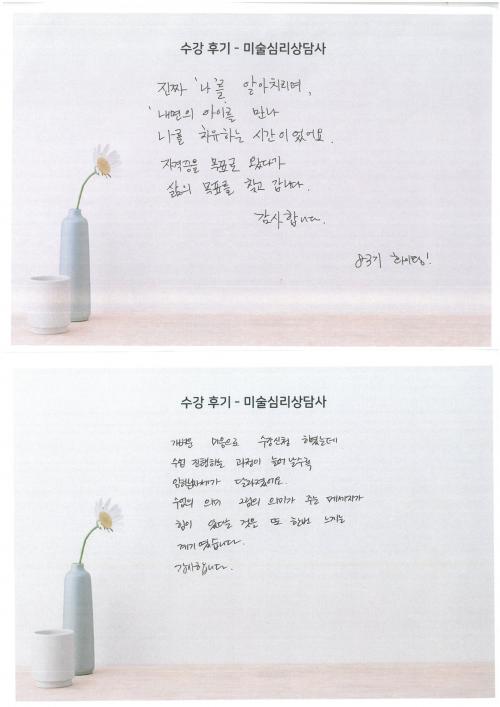 수강 후기 - 미술심리상담사
진짜 '나'를 알아차리며,
'내면의 아이'를 만나
나를 치유하는 시간이었어요.
자격증을 목표로 왔다가
삶의 목표를 찾고 갑니다.
감사합니다.
83기 화이팅!
수강 후기 - 미술심리상담사
가벼운 마음으로 수강신청 하였는데
수업 진행하는 과정이 늘어날수록
임하는자세가 달라졌어요.
수업의 의미 그림의 의미가 주는 메세지가
힘이 있다는 것을 또 한번 느끼는
계기 였습니다.
감사합니다.